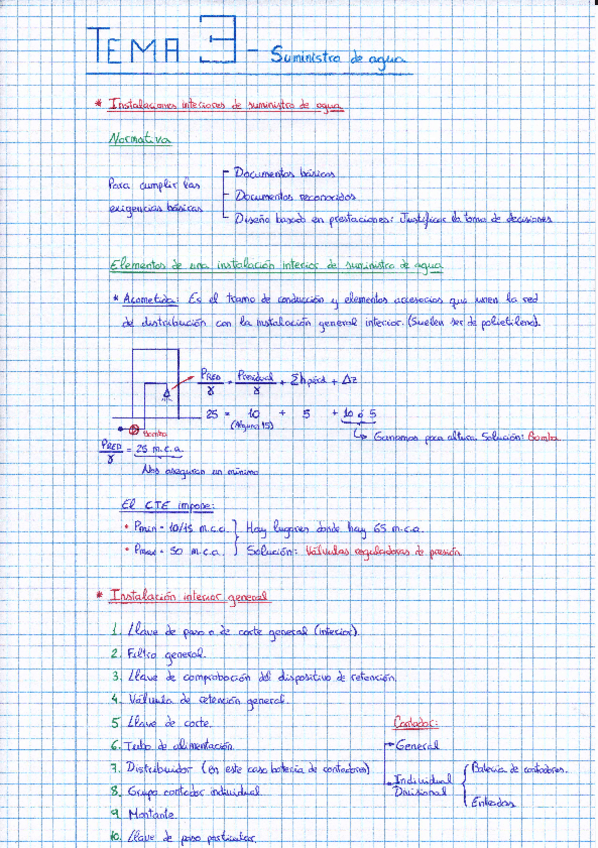 TEMA 3 - Suministro de agua
* Instalaciones interiores de suministro de agua
Normativa
Para cumplir las exigencias básicas
Documentos básicos
Documentos reconocidos
Diseño basado en prestaciones: Justificar la toma de decisiones
Elementos de una instalación interior de suministro de agua
* Acometida: Es el tramo de conducción y elementos accesorios que unen la red
de distribución con la instalación general interior. (Suelen ser de polietileno).
PRED/γ = Presidual/γ + Σhpérd + Δz
25 = 10 + 5 + 10 ó 5
(Alguna 15)
Ganamos poca altura. Solución: Bomba
Bomba
PRED/γ = 25 m.c.a.
Nos aseguran un mínimo
El CTE impone:
• Pmin = 10/15 m.c.a.
• Pmax = 50 m.c.a.
Hay lugares donde hay 65 m.c.a.
Solución: Válvulas reguladoras de presión
* Instalación interior general
1. Llave de paso o de corte general (interior).
2. Filtro general.
3. Llave de comprobación del dispositivo de retención.
4. Válvula de retención general.
5 Llave de corte.
6. Tubo de alimentación.
7. Distribuidor (en este caso batería de contadores)
8. Grupo contador individual
9. Montante
10. Llave de paso particular.
Contador:
General
Individual
Divisional
Batería de contadores.
Entradas